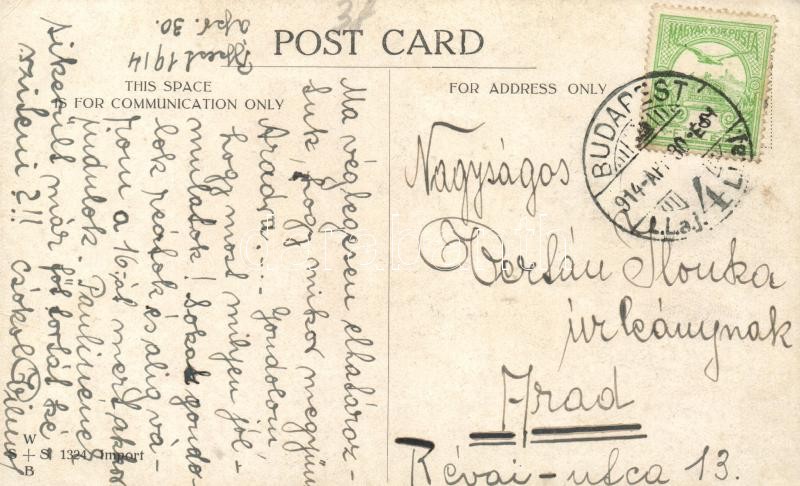 POST CARD
THIS SPACE
IS FOR COMMUNICATION ONLY
FOR ADDRESS ONLY
MAGYAR KIR. POSTA
BUDAPEST
914 APR 30
4
1914
ápr. 30.
Ma véglegesen elhatároz-
tuk, hogy mikor megyünk
Aradra.... Gondolom
hogy most milyen jól
mulatok! Sokat gondo-
lok reátok és alig vá-
rom a 16-át mert akkor
indulok. Paulinéné
sikerült már
szideni?!! Csókol
Nagyságos
Ilonka
úrleánynak
Arad
Révai-utca 13.
W
S + S 1324 Import
B